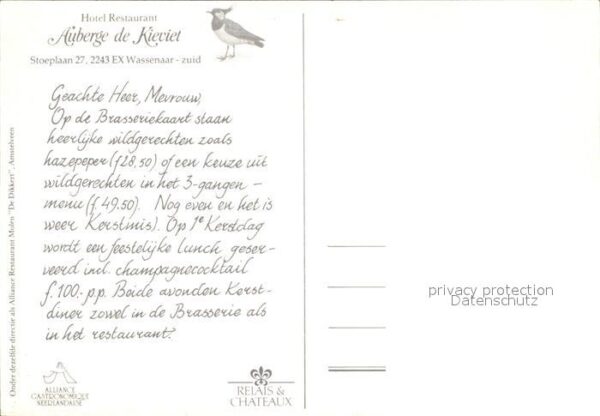 Hotel Restaurant
Auberge de Kieviet
Stoeplaan 27, 2243 EX Wassenaar - zuid
Geachte Heer, Mevrouw,
Op de Brasseriekaart staan
heerlijke wildgerechten zoals
hazepeper (f 28,50) of een keuze uit
wildgerechten in het 3-gangen -
menu (f. 49.50). Nog even en het is
weer Kerstmis). Op 1e Kerstdag
wordt een feestelijke lunch geser-
veerd incl. champagnecocktail
f. 100,- p.p. Beide avonden Kerst-
diner zowel in de Brasserie als
in het restaurant.
Onder dezelfde directie als Alliance Restaurant Molen "De Dikkert", Amstelveen
ALLIANCE
GASTRONOMIQUE
NEERLANDAISE
RELAIS &
CHATEAUX
privacy protection
Datenschutz